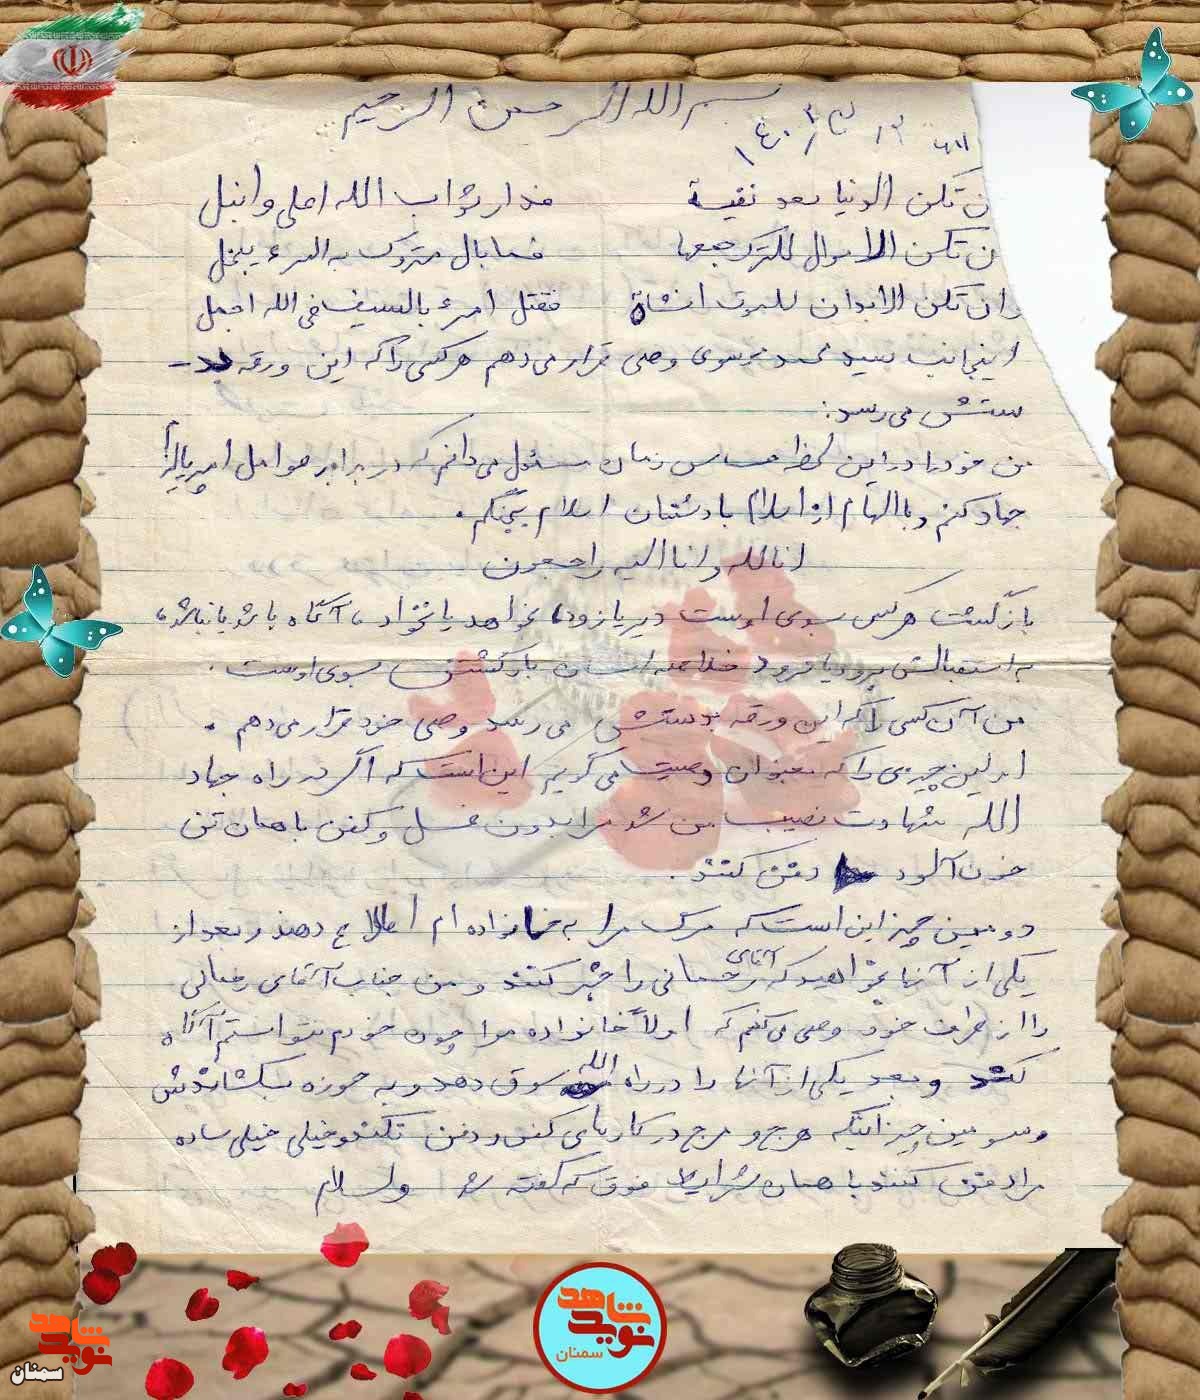 بسم الله الرحمن الرحیم
ن تکن الدنیا تعد نفیسة فدار ثواب الله اعلی و انبل
ن تکن الاموال للترک جمعها فما بال متروک به المرء یبخل
وان تکن الابدان للموت انشاة فقتل امرء بالسیف فی الله اجمل
اینجانب سید محمد موسوی وصی قرار می دهم هر کسی را که این ورقه بد-
ستش می رسد:
من خود را در این لحظه حساس زمان مسئول می دانم که در برابر عوامل امپریالیزم
جهاد کنم و با الهام از اسلام با دشمنان اسلام بجنگم.
انا لله و انا الیه راجعون
بازگشت هر کسی بسوی اوست دیر یا زود، بخواهد یا نخواد، آگاه باشد یا نباشد،
به استقبالش برود یا نرود خلاصه انسان بازگشتش بسوی اوست.
من آن کسی را که این ورقه بدستش می رسد وصی خود قرار می دهم.
اولین چیزی را که بعنوان وصیت می گویم این است که اگر در راه جهاد
الله شهادت نصیب من شد مرا بدون غسل و کفن با همان تن
خون آلود دفن کنند.
دومین چیز این است که مرگ مرا به خانواده ام اطلاع دهند و بعد از
یکی از آنها بخواهید که آقای رحمانی را خبر کنند و من جناب آقای
را از طرف خود وصی می کنم که اولاً خانواده مرا چون خودم نتوانستم آگاه
کند و بعد یکی از آنها را در راه الله سوق دهد و به حوزه بکشاندش
و سومین چیز اینکه هرج و مرج در کارهای کفن و دفن نکنند و خیلی خیلی ساده
مرا دفن کنند با همان شرایط فوق که گفته شد والسلام
نوید شاهد
سمنان
نوید شاهد
سمنان